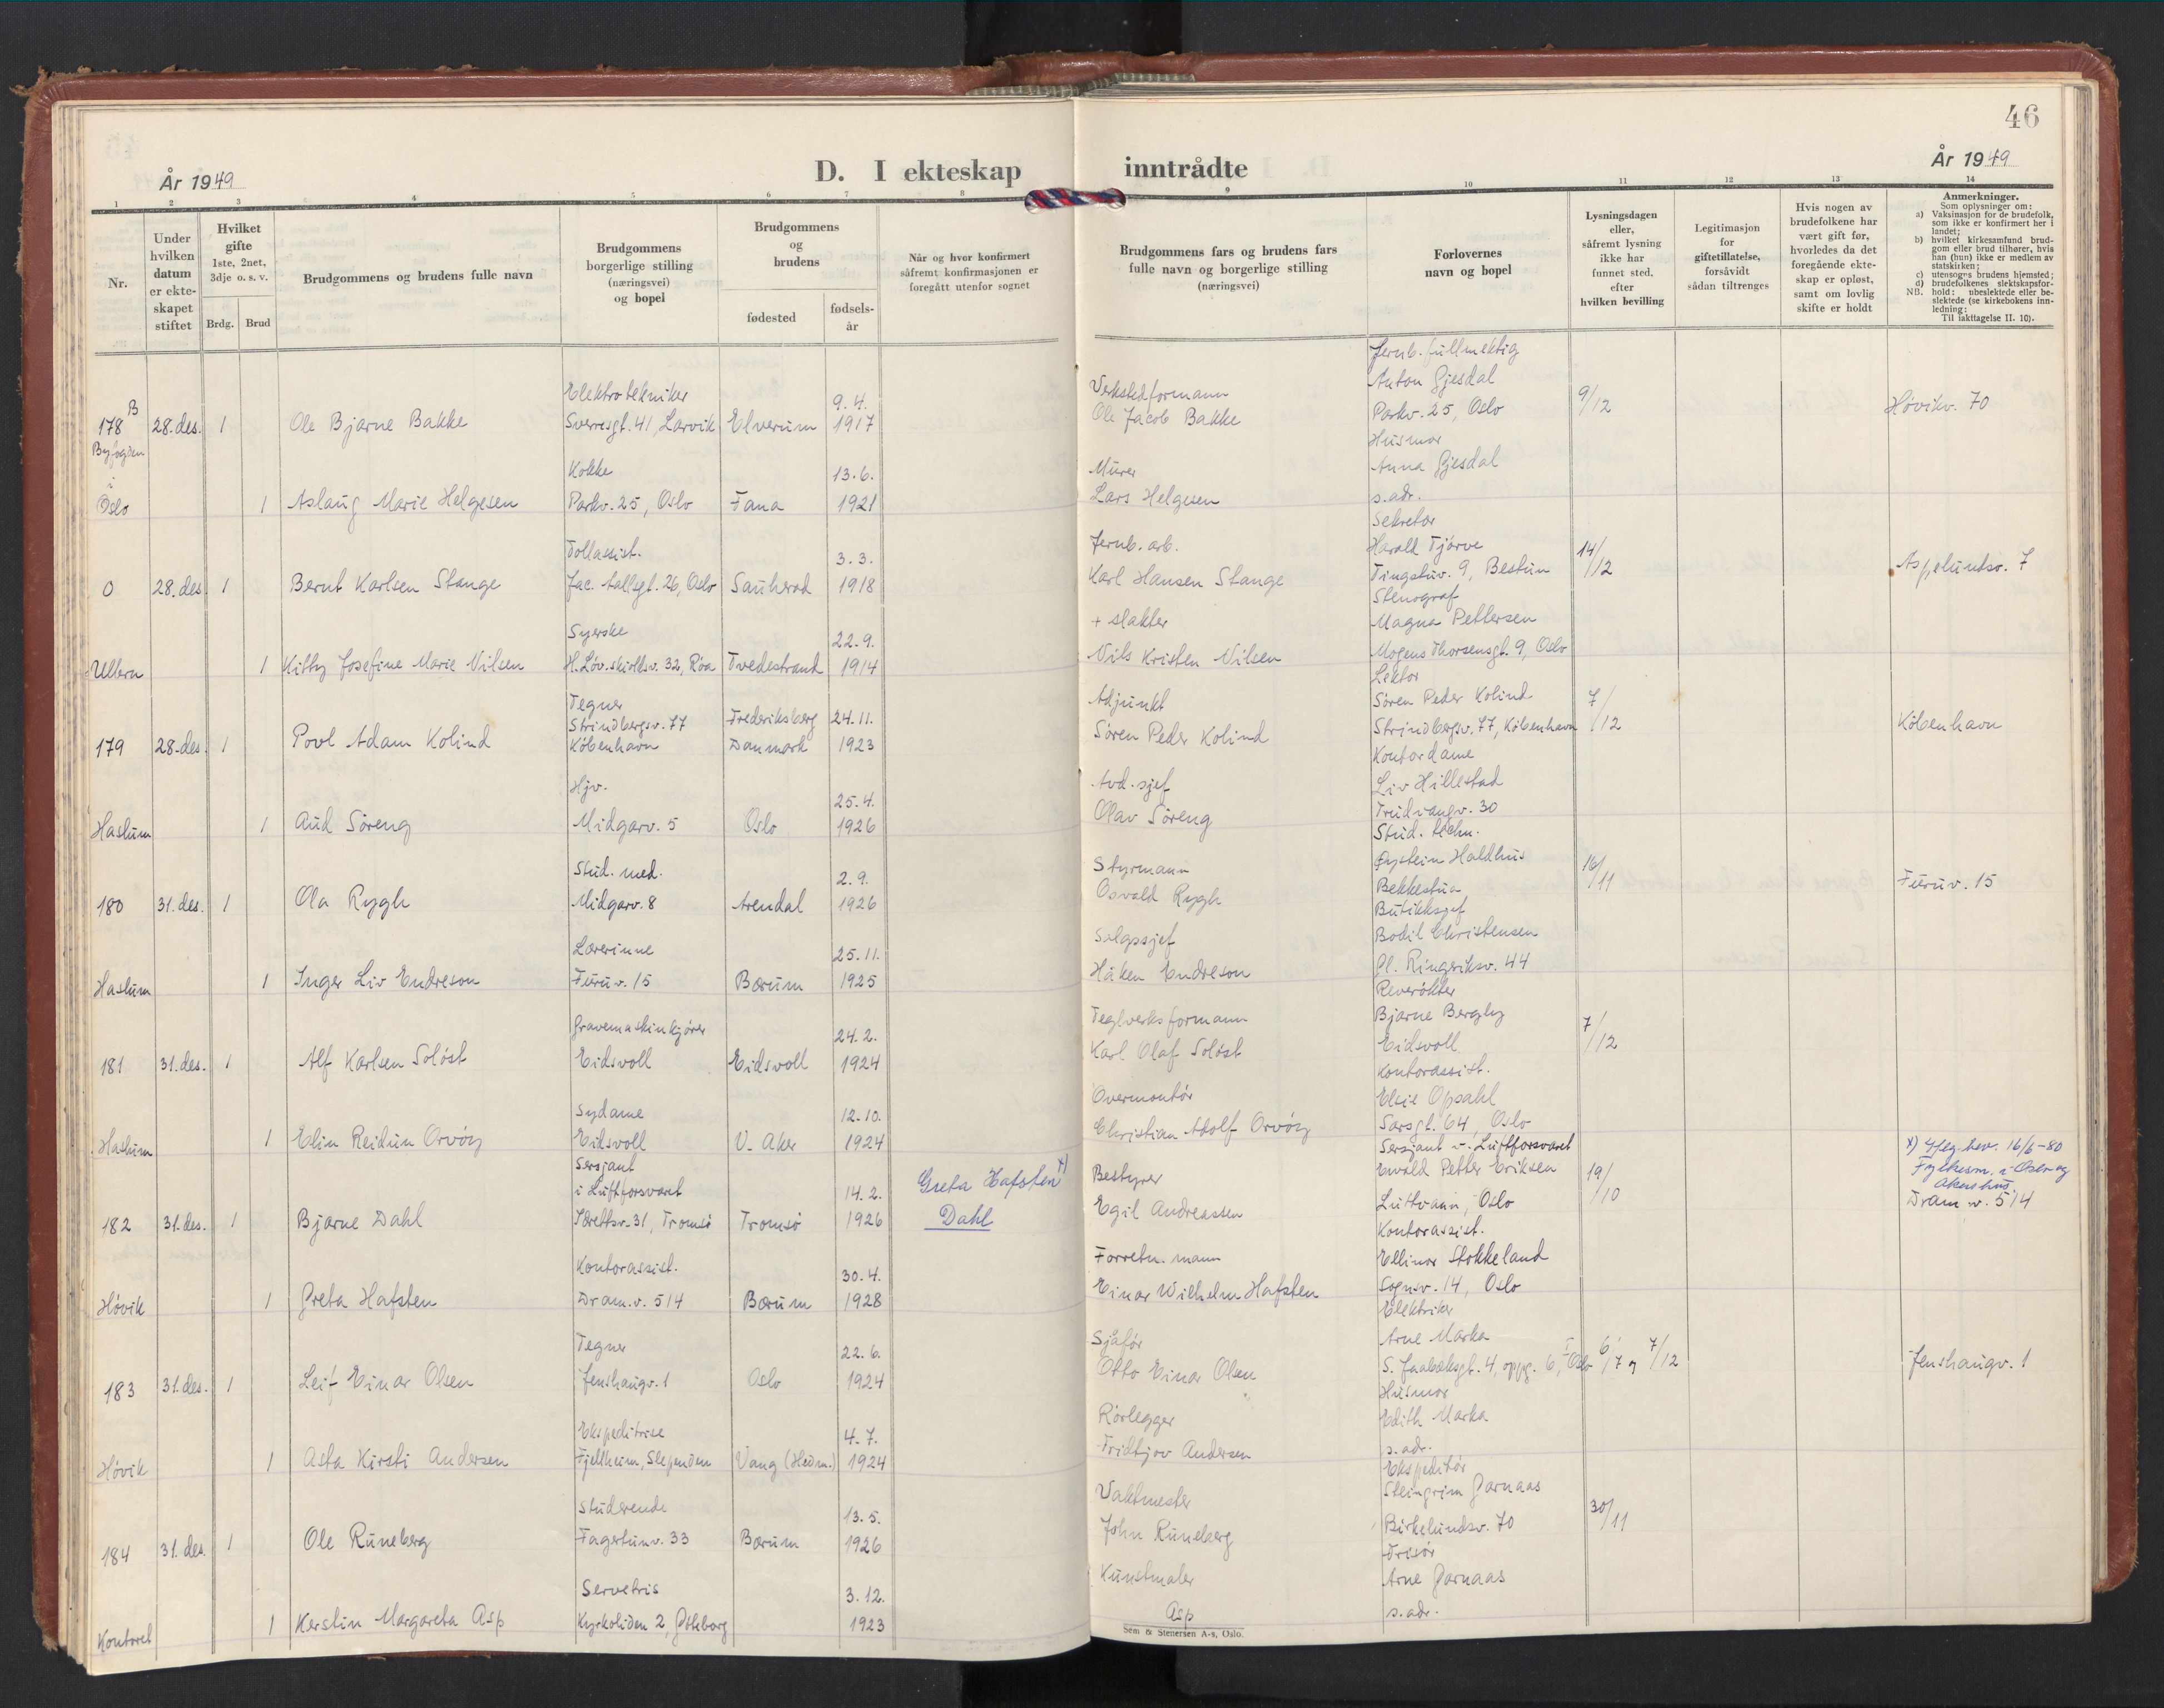 46
År 1949
D. I ekteskap
inntrådte
År 1949
1 2 3 4 5 6 7 8 9 10 11 12 13 14
Nr.
Under hvilken datum er ekteskapet stiftet
Hvilket gifte 1ste, 2net, 3dje o. s. v.
Brdg. Brud
Brudgommens og brudens fulle navn
Brudgommens borgerlige stilling (næringsvei) og bopel
Brudgommens og brudens
fødested
fødsels-år
Når og hver konfirmert såfremt konfirmasjonen er foregått utenfor sognet
Brudgommens fars og brudens fars fulle navn og borgerlige stilling (næringsvei)
Forlovernes navn og bopel
Lysningsdagen eller, såfremt lysning ikke har funnet sted, efter hvilken bevilling
Legitimasjon for giftetillatelse, forsåvidt sådan tiltrenges
Hvis nogen av brudefolkene har vært gift før, hvorledes da det foregående ekteskap er opløst, samt om lovlig skifte er holdt
Anmerkninger.
Som oplysninger om:
a) Vaksinasjon for de brudefolk, som ikke er konfirmert her i landet;
b) hvilket kirkesamfund brudgom eller brud tilhører, hvis han (hun) ikke er medlem av statskirken;
c) utensogns brudens hjemsted;
d) brudefolkenes slektskapsforhold: ubeslektede eller beslektede (se kirkebokens innledning:
NB. Til iakttagelse II. 10).
178 B 28. des. 1 Ole Bjarne Bakke Elektrotekniker Sverresgt. 41, Larvik Elverum 9.4. 1917 Verkstedformann Ole Jacob Bakke Jernb. fullmektig Anton Gjesdal Parkv. 25, Oslo 9/12 Høvikv. 70
Byfogden i Oslo 1 Aslaug Marie Helgesen Kokke Parkv. 25, Oslo Fana 13.6. 1921 Murer Lars Helgesen Husmor Anna Gjesdal s. adr.
0 28. des 1 Bernt Karlsen Stange Tollassist. Jac. Aallsgt. 26, Oslo Sauherad 3.3. 1918 Jernb. arb. Karl Hansen Stange Sekretær Harald Tjørve Tingstuv. 9, Bestun 14/12 Aspelundsv. 7
Ullern 1 Kitty Josefine Marie Nilsen Syerske H. Løvenskioldsv. 32, Røa Tvedestrand 22.9. 1914 + slakter Nils Kristen Nilsen Stenograf Magna Pettersen Mogens Thorsensgt. 9, Oslo
179 28. des. 1 Povl Adam Kolind Tegner Strindbergsv. 77 København Frederiksberg Danmark 24.11. 1923 Adjunkt Søren Peder Kolind Lektor Søren Peder Kolind Strindbergsv. 77, København 7/12 København
Haslum 1 Aud Søreng Hjv. Midgarv. 5 Oslo 25.4. 1926 Avd. sjef Olav Søreng Kontordame Liv Hillestad Trudvangv. 30
180 31. des. 1 Ola Rygh Stud. med. Midgarv. 8 Arendal 2.9. 1926 Styrmann Osvald Rygh Stud. techn. Øystein Haldhus Bekkestua 16/11 Furuv. 15
Haslum 1 Inger Liv Endreson Lærerinne Furuv. 15 Bærum 25.11. 1925 Salgssjef Håken Endreson Butikksjef Bodil Christensen Gl. Ringeriksv. 44
181 31. des. 1 Alf Karlsen Soløst Gravemaskinkjører Eidsvoll Eidsvoll 24.2. 1924 Teglverksformann Karl Olaf Soløst Reverøkter Bjarne Bergby Eidsvoll 7/12
Haslum 1 Elin Reidun Orvøy Sydame Eidsvoll V. Aker 12.10. 1924 Overmontør Christian Adolf Orvøy Kontorassist. Elsie Opsahl Sarsgt. 64, Oslo
182 31. des. 1 Bjarne Dahl Sersjant i Luftforsvaret Tromsø Tromsø 14.2. 1926 Greta Hafsten Dahl x) Bestyrer Egil Andreassen Sersjant v. Luftforsvaret Ewald Petter Eriksen Luftvaàn, Oslo 19/10 x) bev. 16/6-80 Fylkesm. i Oslo og Akershus Dram.v. 514
Høvik 1 Greta Hafsten Kontorassist. Dram.v. 514 Bærum 30.4. 1928 Forretn. mann Einar Wilhelm Hafsten Kontorassist. Ellinor Stokkeland Sognsv. 14, Oslo
183 31. des. 1 Leif Einar Olsen Tegner Jenshaugv. 1 Oslo 22.6. 1924 Sjåfør Otto Einar Olsen Elektriker Arne Marka S. Jaabæksgt. 4, oppg. 6, I Oslo 6/7 og 7/12 Jenshaugv. 1
Høvik 1 Asta Kirsti Andersen Ekspeditrise Fjellheim, Slependen Vang (Hedm.) 4.7. 1924 Rørlegger Fridtjov Andersen Husmor Edith Marka s. adr.
184 31. des. 1 Ole Runeberg Studerende Fagertunv. 33 Bærum 13.5. 1926 Vaktmester John Runeberg Ekspeditør Steingrim Garnaas Birkelundsv. 70 30/11
Kontoret 1 Kerstin Margareta Asp Servetris Kyrkoliden 2, Göteborg 3.12. 1923 Kunstmaler Asp Frisør Arne Garnaas s. adr.
Sem & Stenersen A-s, Oslo.